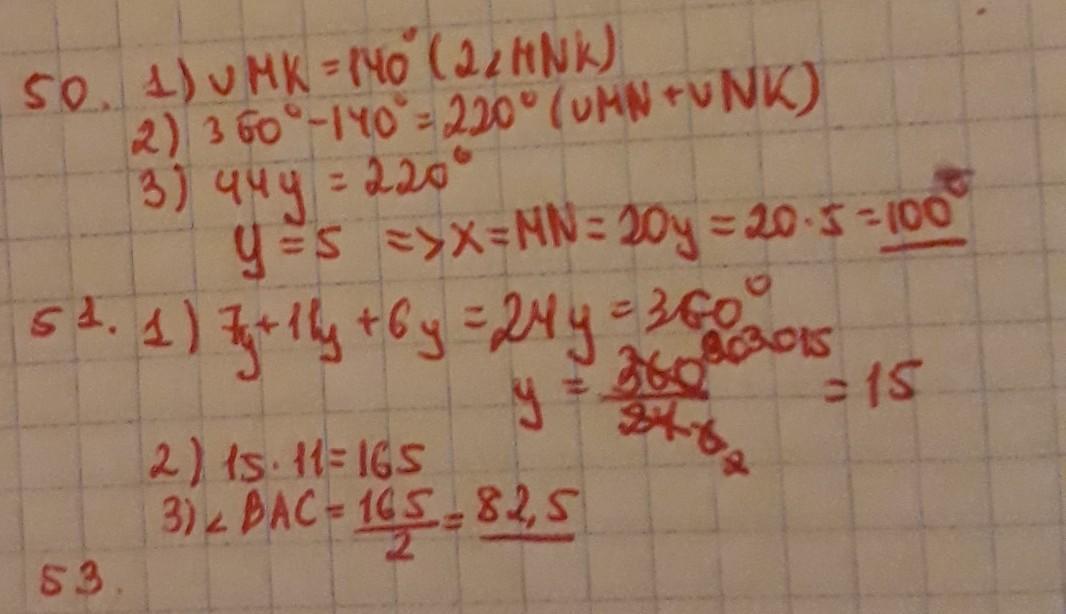 50. 1) ∪MK = 140° (2∠MNK)
2) 360° - 140° = 220° (∪MN + ∪NK)
3) 44y = 220°
y = 5 => x = MN = 20y = 20·5 = 100°
51. 1) 7y + 11y + 6y = 24y = 360°
y = 360/24 = 15
2) 15·11 = 165
3) ∠BAC = 165/2 = 82,5
53.